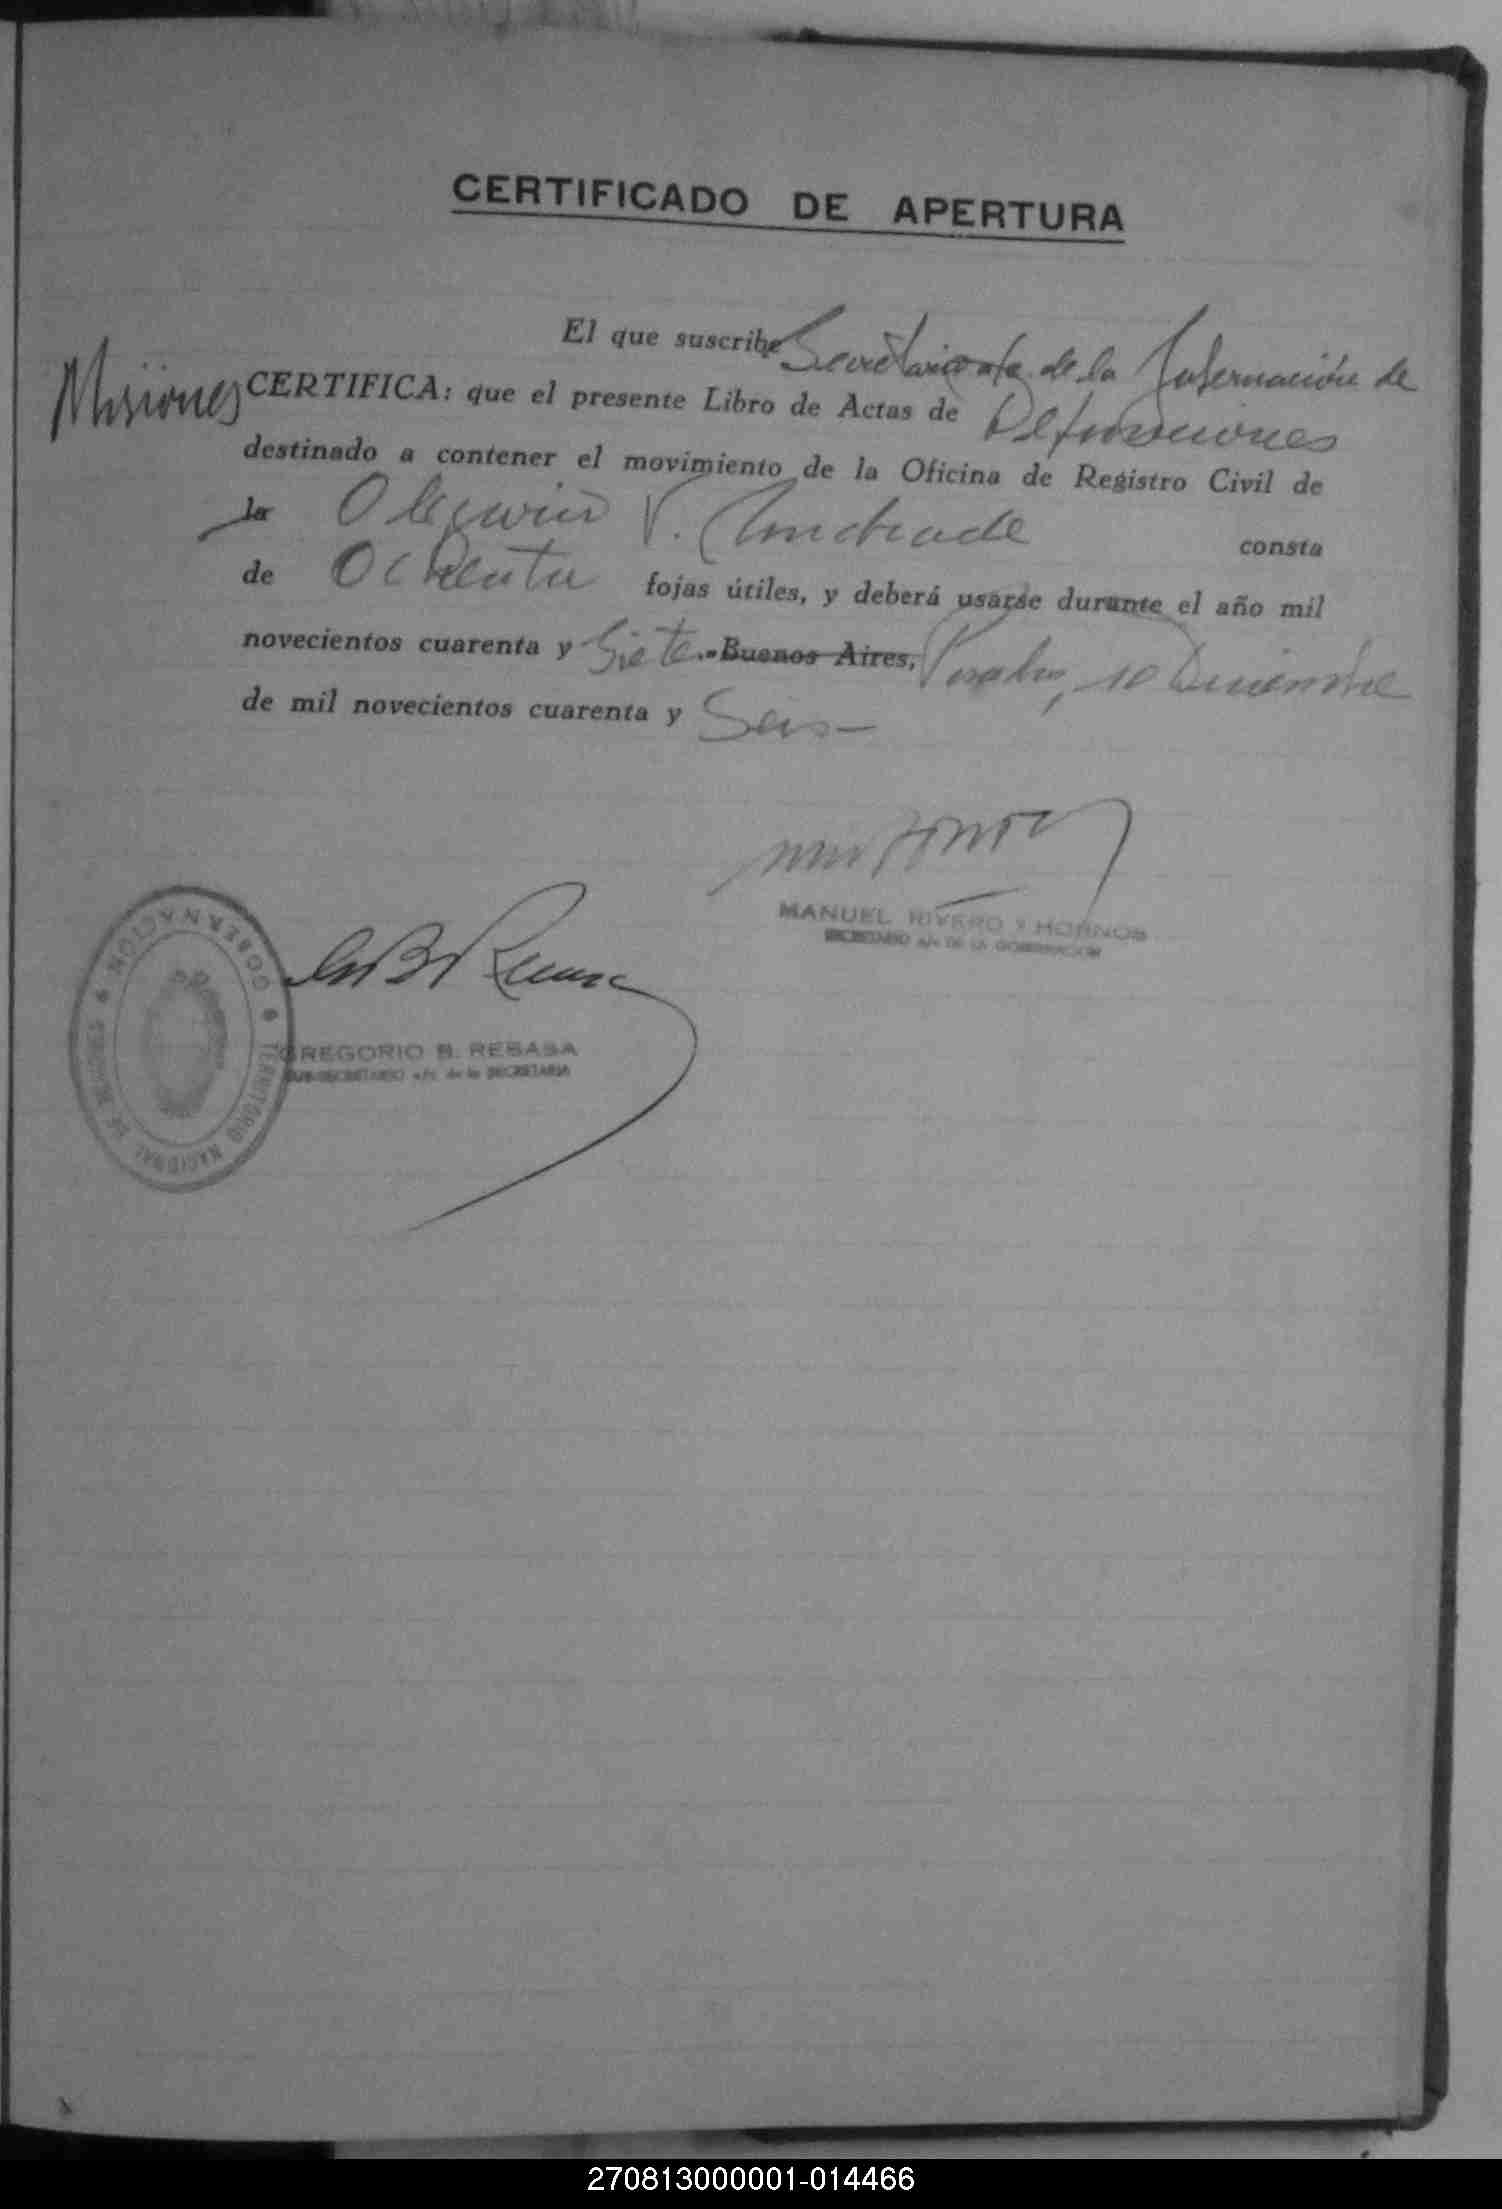 CERTIFICADO DE APERTURA
El que suscribe Secretario a/c. de la Gobernación de
Misiones CERTIFICA: que el presente Libro de Actas de Defunciones
destinado a contener el movimiento de la Oficina de Registro Civil de
la Olegario V. Andrade consta
de Ochenta fojas útiles, y deberá usarse durante el año mil
novecientos cuarenta y Siete.-Buenos Aires, Posadas, 10 Diciembre
de mil novecientos cuarenta y Seis-
MANUEL RIVERO Y HORNOS
SECRETARIO a/c DE LA GOBERNACION
GREGORIO B. REBASA
SUB-SECRETARIO a/c. de la SECRETARIA
GOBERNACION
TERRITORIO NACIONAL DE MISIONES
270813000001-014466